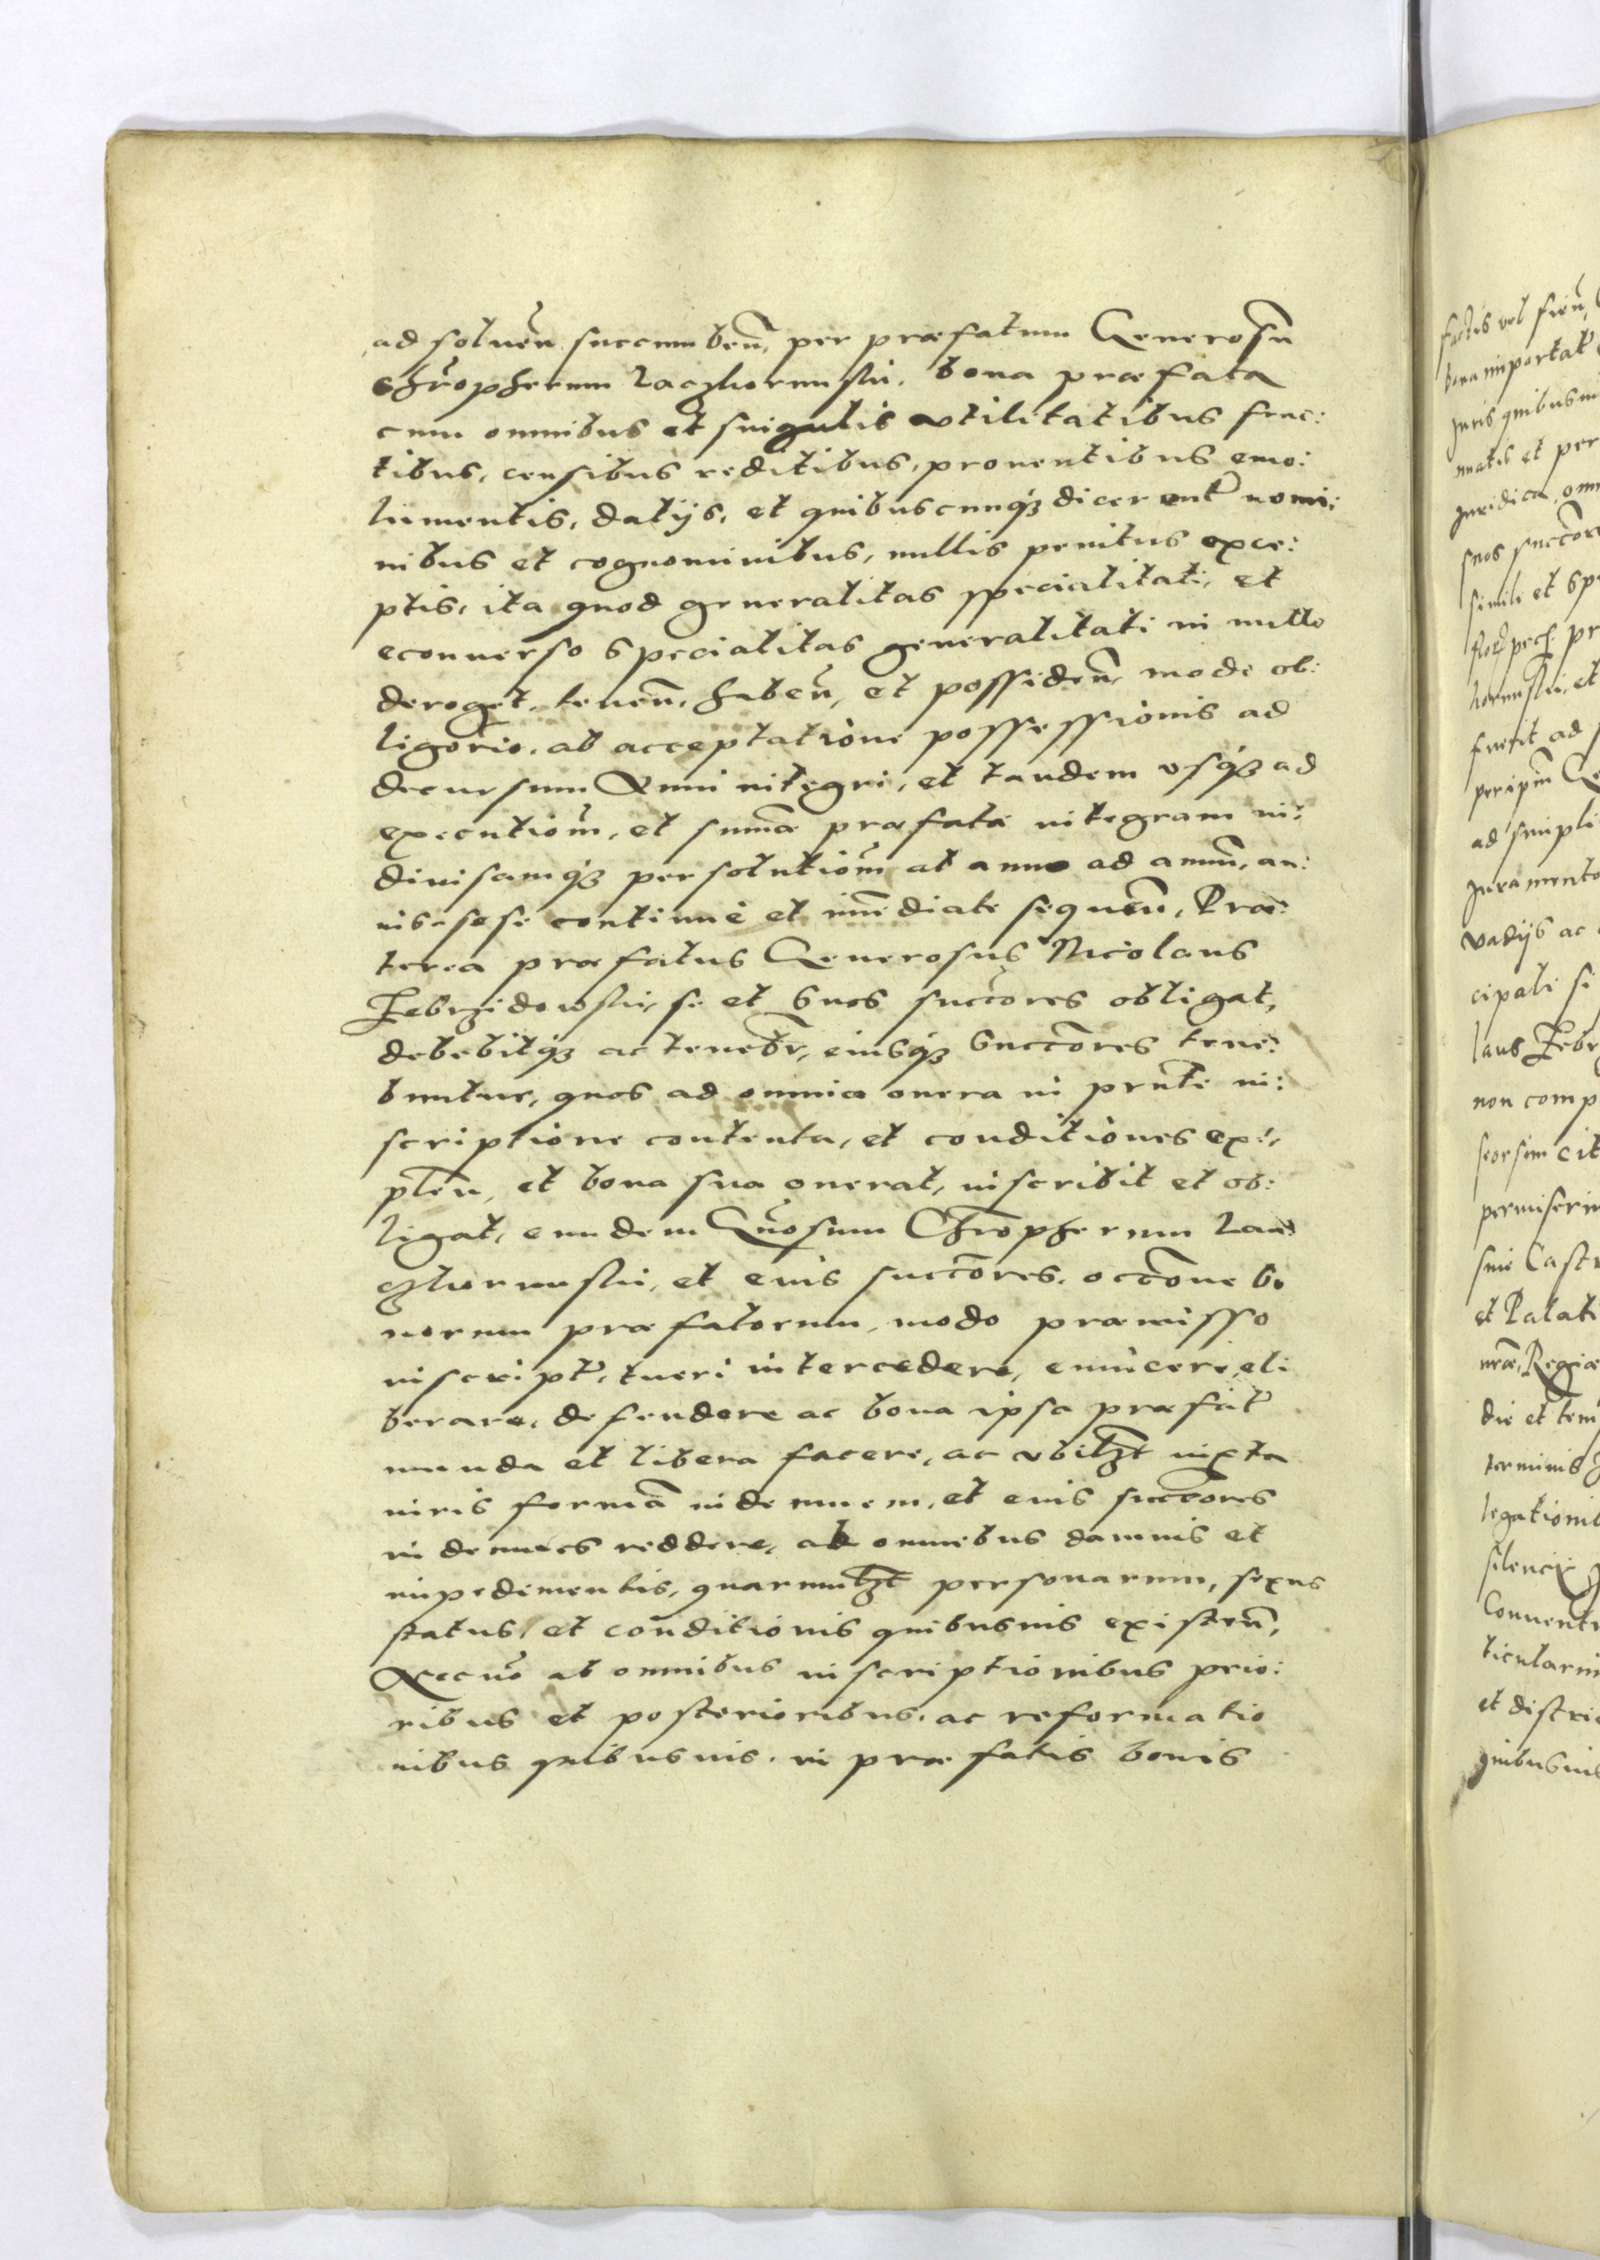 ad soluen̄ succumben̄, per præfatum Generosū
Chr̄opherum Laczhornuskii, bona præfata
cum omnibus et singulis vtilitatibus fruc:
tibus, censibus reditibus, prouentibus emo:
lumentis, datijs, et quibuscunq3 dicerent̄ nomi:
nibus et cognominibus, nullis penitus exce:
ptis, ita quod generalitas specialitati, et
econuerso specialitas generalitati in nullo
deroget, tenen̄, haben̄, et possiden̄, modo ob:
ligorio, ab acceptatione possessionis ad
decursum Anni integri, et tandem vsq3 ad
executiom̄, et sum̄æ præfatæ integram in:
diuisamq3 persolutiom̄ ab anno ad annū, an:
nis sese continuè et im̄ediate sequen̄, Præ:
terea præfatus Generosus Nicolaus
Zebrzidowskii, se et suos succōres obligat,
debebitq3 ac tenebr̄, eiusq3 succōres tene:
buntur, quos ad omnia onera in pr̄nti in:
scriptione contenta, et conditiones ex:
plen̄, et bona sua onerat, inscribit et ob:
ligat, eundem Gn̄osum Chr̄opherum Lac:
zhornuskii, et eius succōres, occōne bo
norum præfatorum, modo præmisso
inscript̄, tueri intercedere, euincere, eli
berare, defendere ac bona ipsa præfat̄
munda et libera facere, ac vbilzt iuxta
iuris formā indemnem, et eius succōres
indemnes reddere, ab omnebus damnis et
impedimentis, quarumlzt personarum, sexus
status, et conditionis quibusuis existen̄,
Necnō ab omnibus inscriptionibus prio:
ribus et posterioribus, ac reformatio
nibus quibusuis, in præfatis bonis
factis vel fien̄,
bona importat̄
iuris quibusui
Juridica, om
suos succōre
simili et spe
fuerit ad
per ipm̄ Ge
ad simpli
Juramento
vadijs ac
cipali si
laus Zebr
non comp
seorsim cit
permiserin
siue Castr
et Palati
die et tem
terminis
legationib
silencij
Conuent
ticularim
et distric
quibusuis